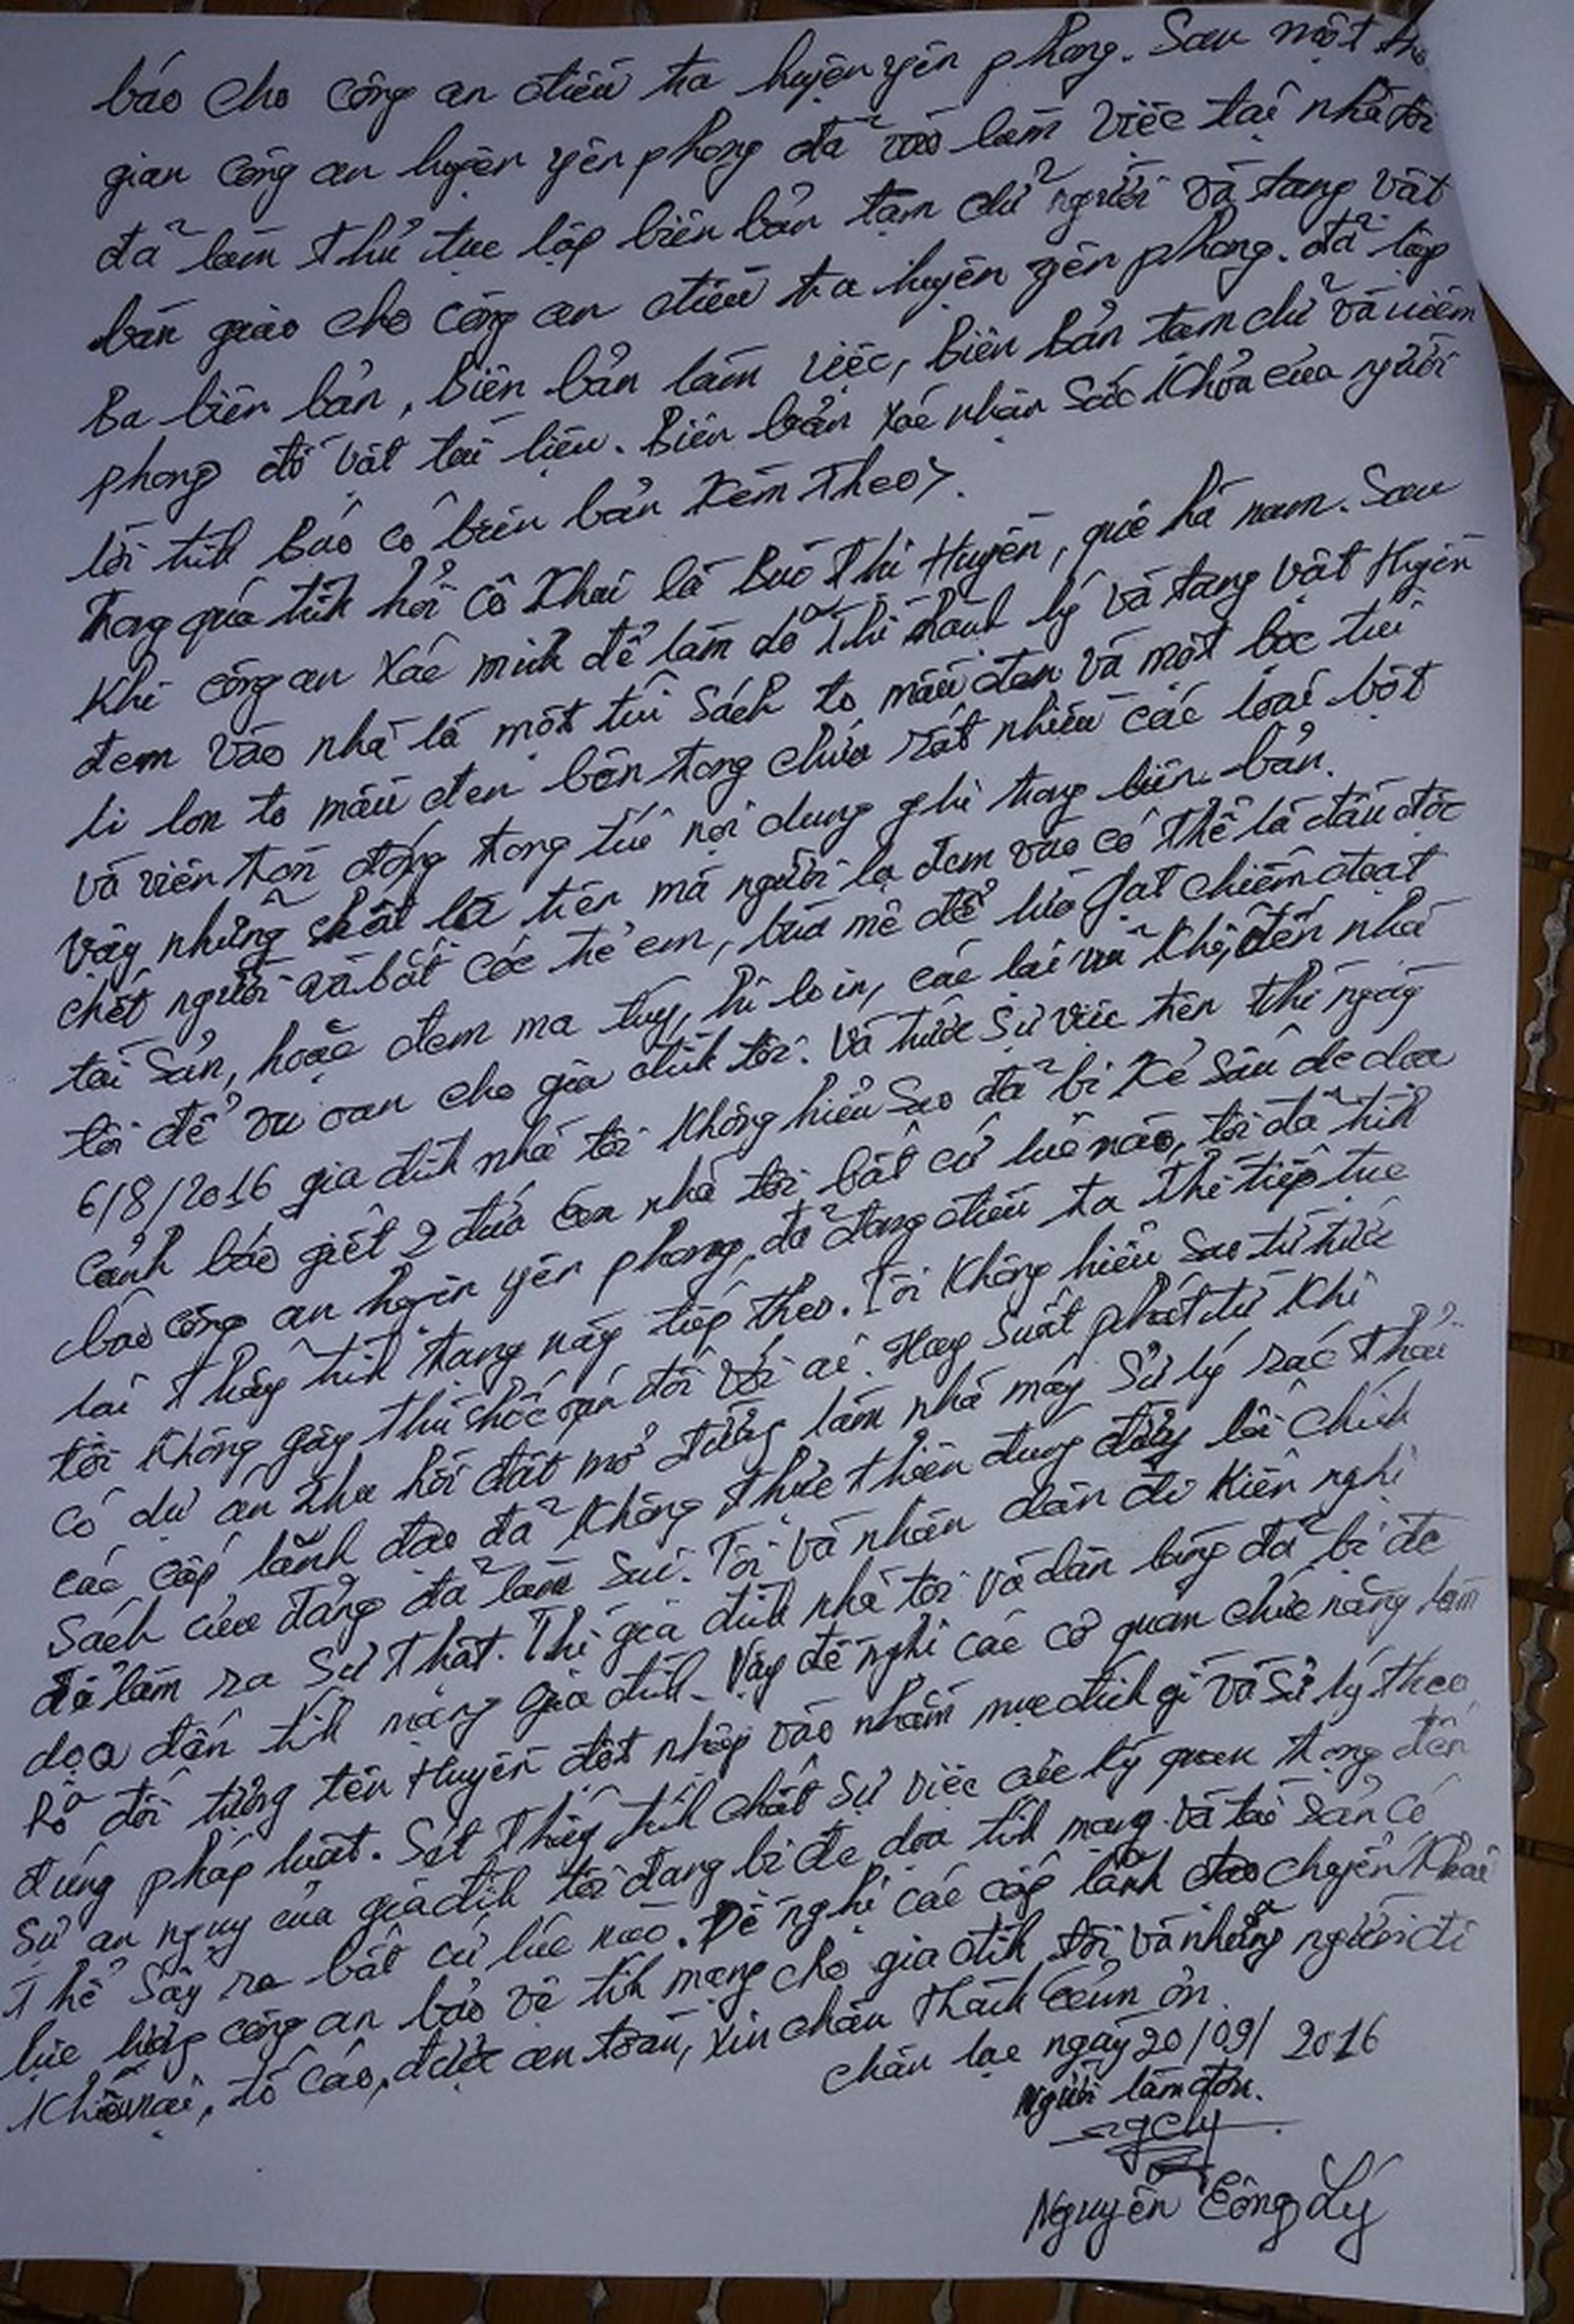 báo cho công an điều tra huyện yên phong. Sau một thờ
gian công an huyện yên phong đã vào làm việc tại nhà tôi
đã làm thủ tục lập biên bản tạm chữ người và tang vật
bàn giao cho công an điều tra huyện yên phong. đã lập
Ba biên bản, biên bản làm việc, biên bản tạm chữ và niêm
phong đồ vật tài liệu. Biên bản xác nhận sức khỏa của người
lời trình báo có biên bản kèm theo>.
Trong quá trình hỏi cô khai là Bùi Thị Huyền, quê hà nam. Sau
khi công an xác minh để làm rõ thì hành lý và tang vật Huyền
đem vào nhà là một túi sách to màu đen và một bọc túi
li lon to màu đen bên trong chứa rất nhiều các loại bột
và viên tròn đóng trong túi nội dung ghi trong biên bản.
Vậy những chất là trên mà người lạ đem vào có thể là đầu độc
chết người và bắt cóc trẻ em, bùa mê để lừa gạt chiếm đoạt
tài sản, hoặc đem ma túy, hê lo in, các lại vũ khí, đến nhà
tôi để vu oan cho gia đình tôi. Và trước sự việc trên thì ngày
6/8/2016 gia đình nhà tôi không hiểu sao đã bị kẻ sấu đe dọa
cảnh báo giết 2 đứa con nhà tôi bất cứ lúc nào, tôi đã trình
báo công an huyện yên phong, đã đang điều tra thì tiếp tục
lại thấy tình trạng này tiếp theo. Tôi không hiểu sao từ trước
tôi không gây thù chốc oán đối với ai. Hay suất phát từ khi
có dự án thu hồi đất mở đường làm nhà máy sử lý rác thải
các cấp lãnh đạo đã không thực thiện đung đường lối chính
sách của đảng đã làm sai. Tôi và nhân dân đi kiến nghị
để làm ra sự thật. Thì gia đình nhà tôi và dân làng đã bị đe
dọa đến tính mạng gia đình. Vậy đề nghị các cơ quan chức năng làm
rõ đối tượng tên Huyền đột nhập vào nhằm mục đích gì và sử lý theo
đúng pháp luật. Sét thấy tính chất sự việc cức kỳ quan trọng đến
sự an nguy của gia đình tôi đang bị đe dọa tính mạng và tài sản có
thể sảy ra bất cứ lúc nào. Đề nghị các cấp lãnh đạo chuyển khai
lực lượng công an bảo vệ tính mạng cho gia đình tôi và những người đi
khiếu nại, tố cáo, được an toàn, xin chân thành cảm ơn.
chân lạc ngày 20/09/ 2016
Người làm đơn.
Nguyễn Công Lý